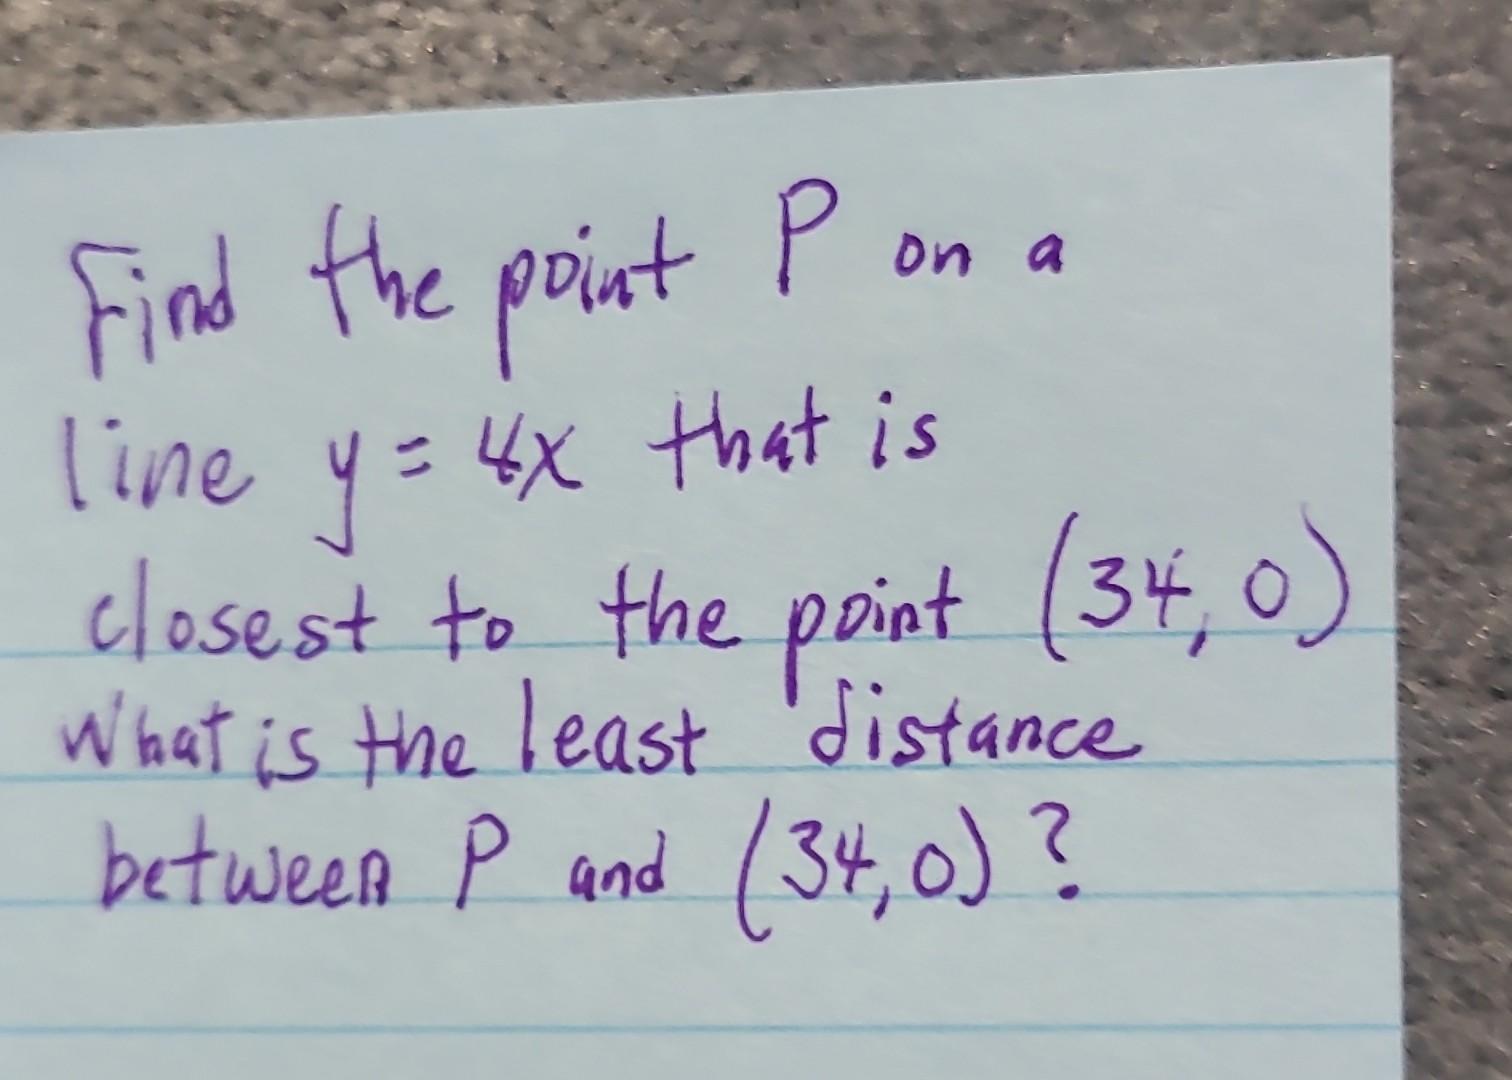 Find the point P on a
line y = 4x that is
closest to the point (34, 0)
What is the least distance
between P and (34, 0)?